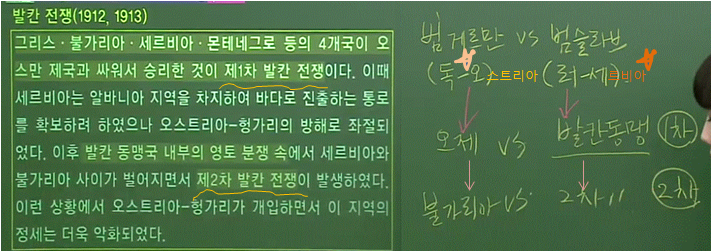 발칸 전쟁(1912, 1913)
그리스·불가리아·세르비아·몬테네그로 등의 4개국이 오
스만 제국과 싸워서 승리한 것이 제1차 발칸 전쟁이다. 이때
세르비아는 알바니아 지역을 차지하여 바다로 진출하는 통로
를 확보하려 하였으나 오스트리아-헝가리의 방해로 좌절되
었다. 이후 발칸 동맹국 내부의 영토 분쟁 속에서 세르비아와
불가리아 사이가 벌어지면서 제2차 발칸 전쟁이 발생하였다.
이런 상황에서 오스트리아-헝가리가 개입하면서 이 지역의
정세는 더욱 악화되었다.
범게르만 vs 범슬라브
(독-오)스트리아 (러-세)르비아
오제 vs 발칸동맹 1차
불가리아 vs 2차 〃 2차